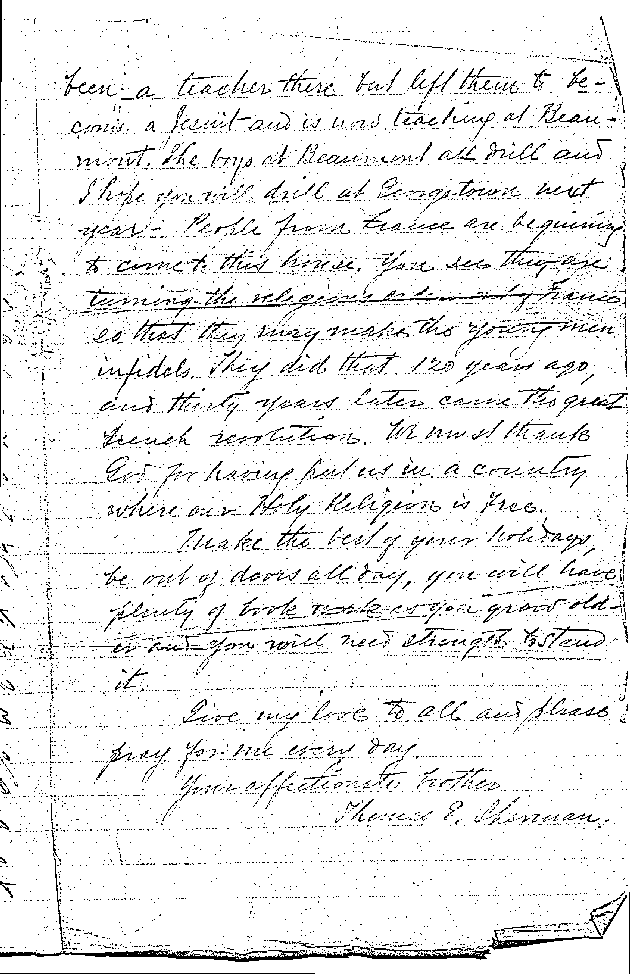 been a teacher there but left them to be-
come a Jesuit and is now teaching at Beau-
mont. The boys at Beaumont all drill and
I hope you will drill at Georgetown next
year. People from France are beginning
to come to this house. You see they are
turning the religious orders out of France
so that they may make the young men
infidels. They did that 120 years ago,
and thirty years later came the great
French revolution. We must thank
God for having put us in a country
where our Holy Religion is Free.
Make the best of your holidays,
be out of doors all day, you will have
plenty of book work as you grow old-
er and you will need strength to stand
it.
Give my love to all and please
pray for me every day.
Your affectionate brother
Thomas E. Sherman.